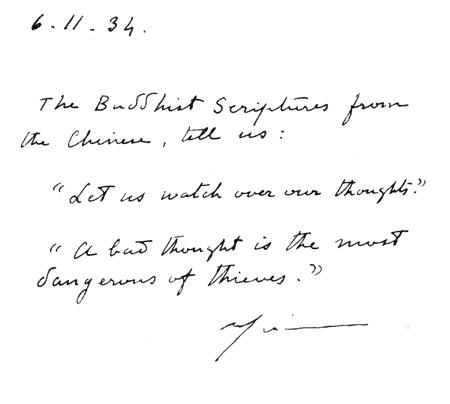 6.11.34.
The Buddhist Scriptures from
the Chinese, tell us:
"Let us watch over our thoughts."
"A bad thought is the most
dangerous of thieves."